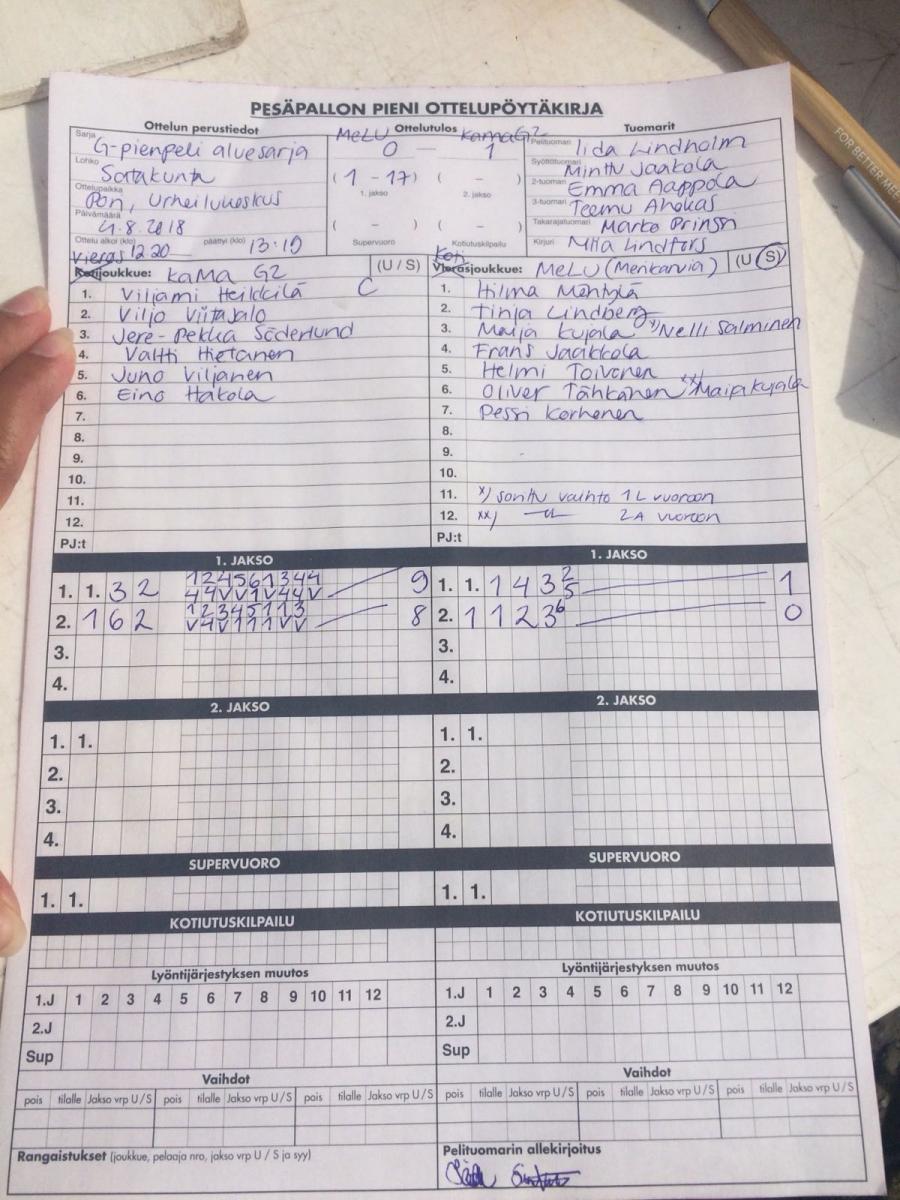 FOR BETTER MES
PESÄPALLON PIENI OTTELUPÖYTÄKIRJA
Ottelun perustiedot
Sarja G-pienpeli aluesarja
Lohko Satakunta
Ottelupaikka Pori, Urheilukeskus
Päivämäärä 4.8.2018
Ottelu alkoi (klo) 12.20 päättyi (klo) 13:19
MeLU Ottelutulos KaMaG2
0 — 1
(1 - 17) ( - )
1. jakso 2. jakso
( - ) ( - )
Supervuoro Kotiutuskilpailu
Tuomarit
Pelituomari Iida Lindholm
Syöttötuomari Minttu Jaakola
2-tuomari Emma Aappola
3-tuomari Teemu Ahokas
Takarajatuomari Marko Prinssi
Kirjuri Miia Lindfors
Vieras
Kotijoukkue: KaMa G2 (U / S)
1. Viljami Heikkilä C
2. Viljo Viitasalo
3. Jere-Pekka Söderlund
4. Valtti Hietanen
5. Juno Viljanen
6. Eino Hakola
7.
8.
9.
10.
11.
12.
PJ:t
Koti
Vierasjoukkue: MeLU (Merikarvia) (U / S)
1. Hilma Mäntylä
2. Tinja Lindberg
3. Maija Kujala x) Nelli Salminen
4. Frans Jaakkola
5. Helmi Toivonen
6. Oliver Tähkänen xx) Maija Kujala
7. Pessi Korhonen
8.
9.
10.
11. x) sovittu vaihto 1L vuoroon
12. xx) —"— 2A vuoroon
PJ:t
1. JAKSO
1. 1. 3 2 1 2 4 5 6 1 3 4 4 9
4 4 V V 1 V 4 4 V
2. 1 6 2 1 2 3 4 5 1 1 3 8
V 4 V 1 1 1 V V
3.
4.
1. JAKSO
1. 1. 1 4 3 2 1
5
2. 1 1 2 3 6 0
3.
4.
2. JAKSO
1. 1.
2.
3.
4.
2. JAKSO
1. 1.
2.
3.
4.
SUPERVUORO
1. 1.
SUPERVUORO
1. 1.
KOTIUTUSKILPAILU
KOTIUTUSKILPAILU
Lyöntijärjestyksen muutos
1.J 1 2 3 4 5 6 7 8 9 10 11 12
2.J
Sup
Lyöntijärjestyksen muutos
1.J 1 2 3 4 5 6 7 8 9 10 11 12
2.J
Sup
Vaihdot
pois tilalle Jakso vrp U / S pois tilalle Jakso vrp U / S pois tilalle Jakso vrp U / S
Vaihdot
pois tilalle Jakso vrp U / S pois tilalle Jakso vrp U / S pois tilalle Jakso vrp U / S
Rangaistukset (joukkue, pelaaja nro, jakso vrp U / S ja syy)
Pelituomarin allekirjoitus